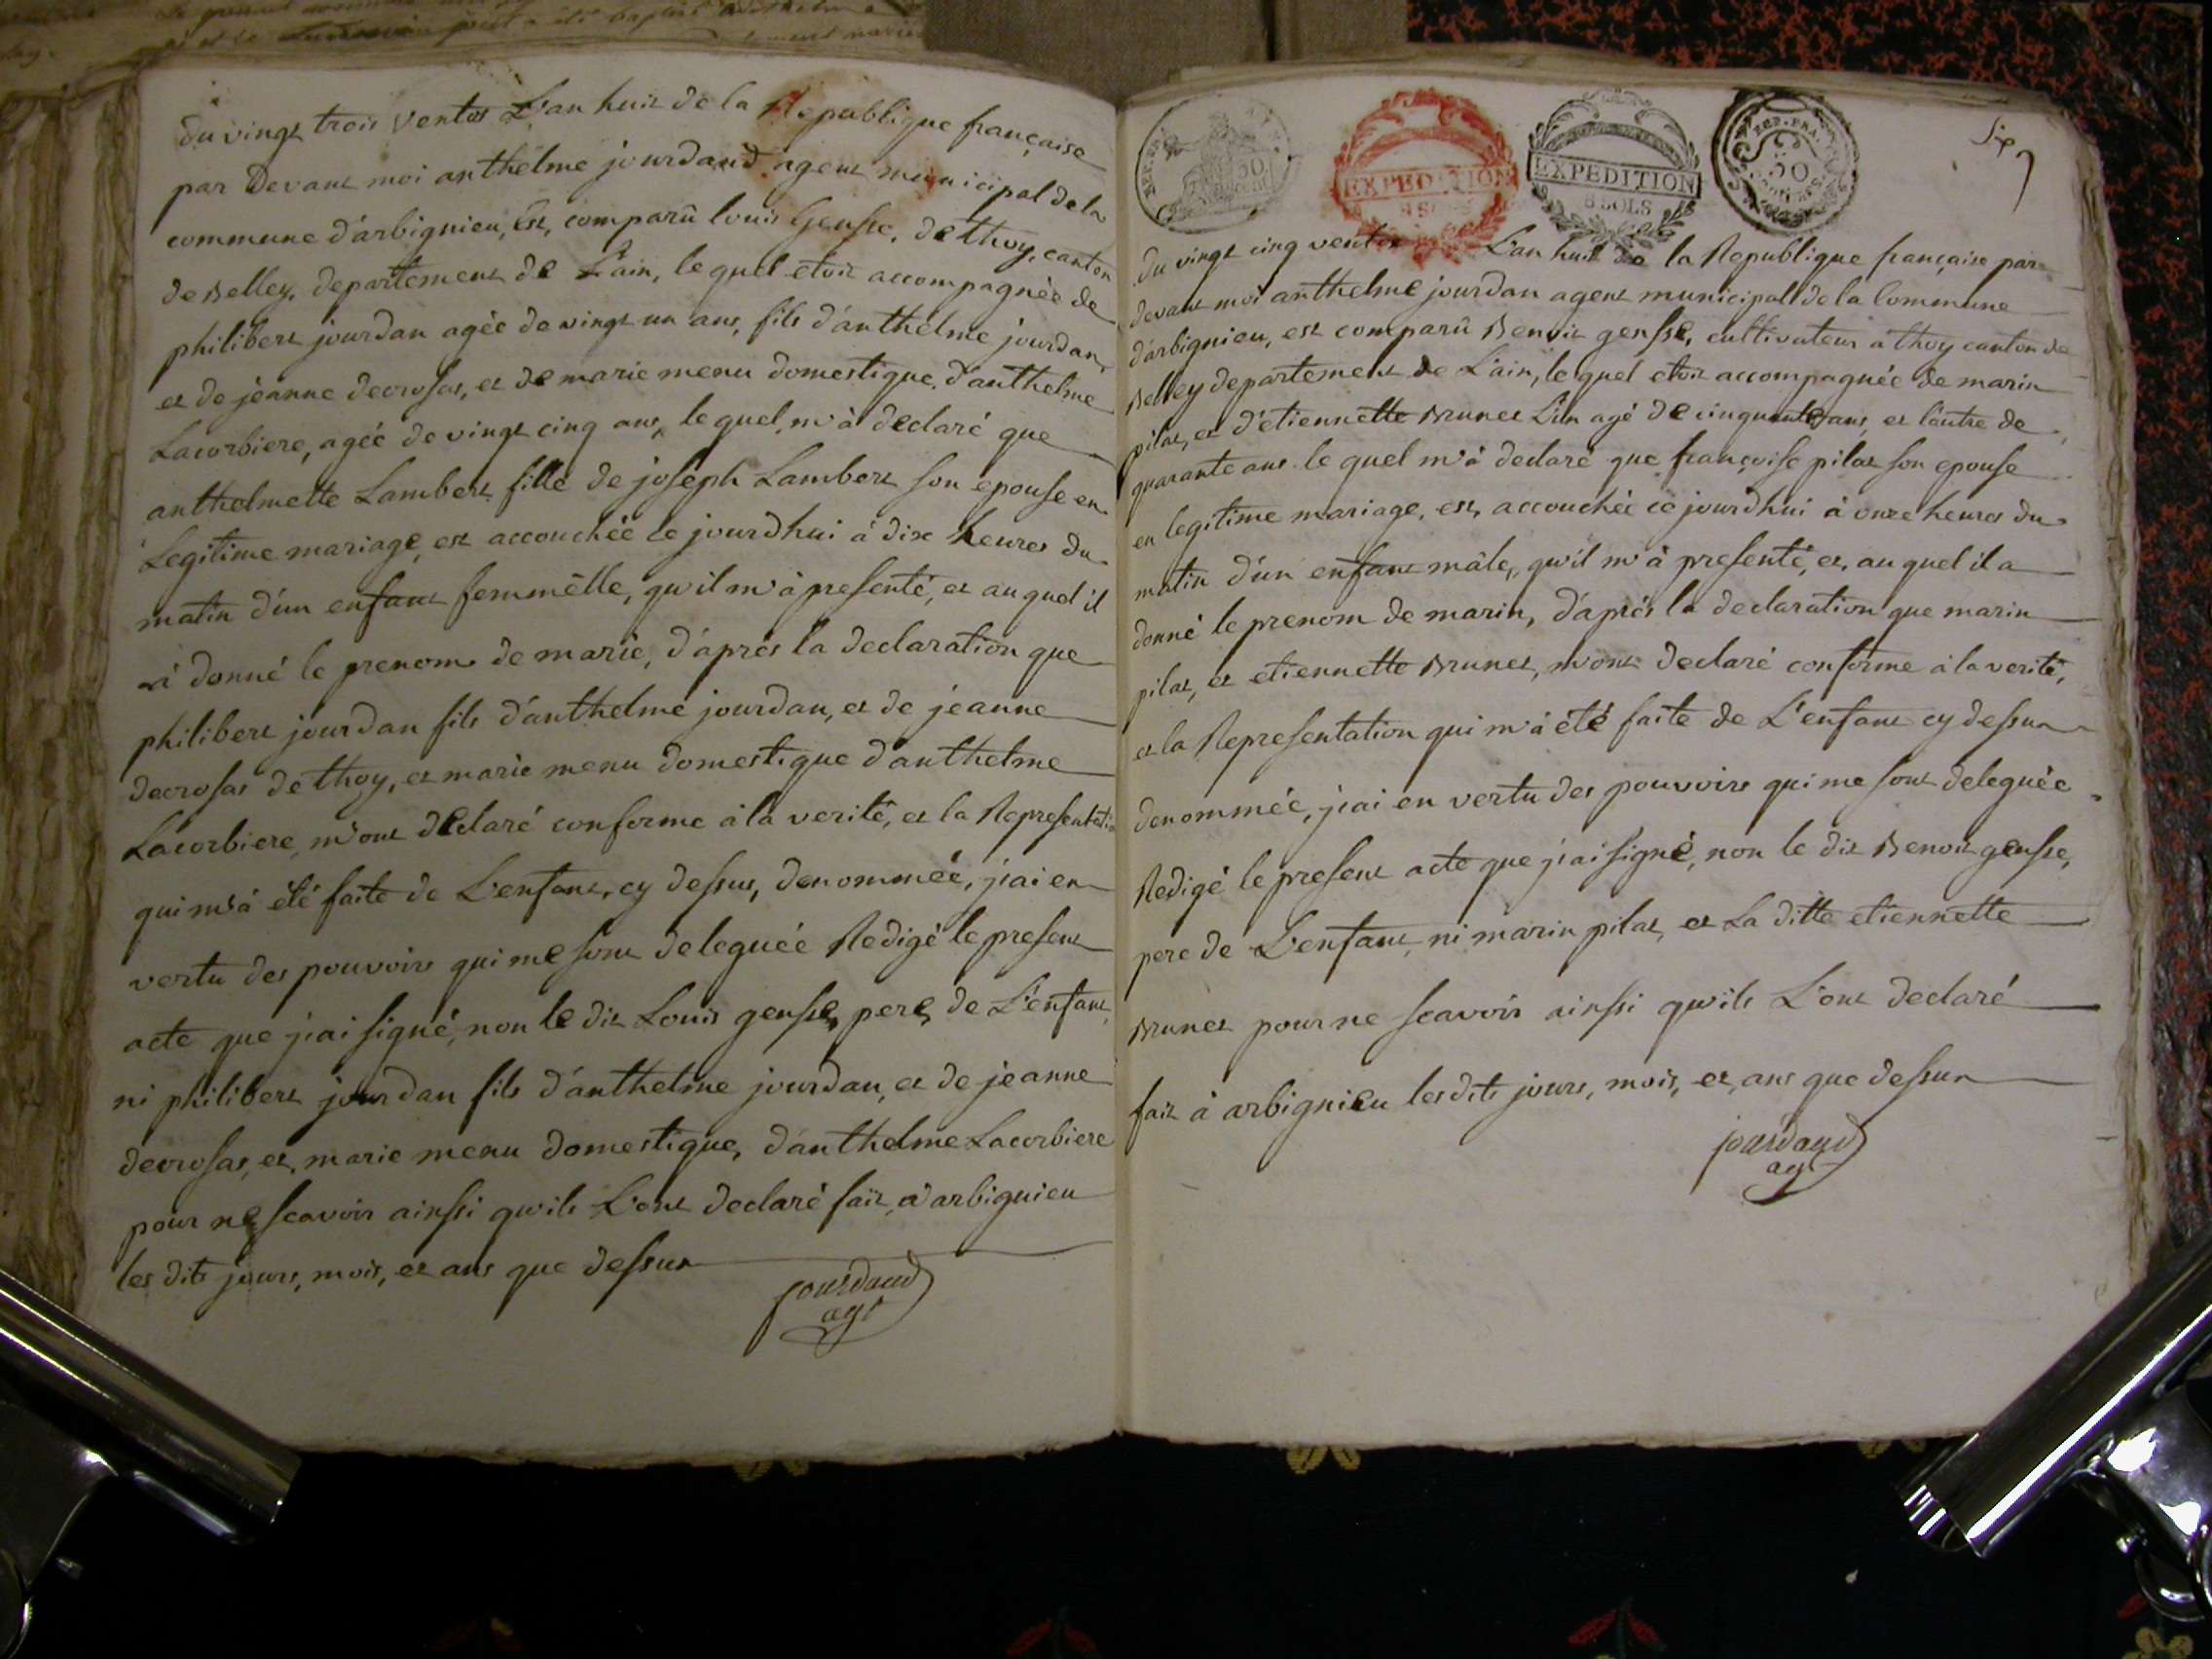 du vingt trois ventos L'an huit de la Republique française
par devant moi anthelme jourdand agent municipal de la
commune d'arbignieu, Est, comparû louis Gensse, de thoy, canton
de Belley, departement de L'ain, le quel etoit accompagnée de
philibert jourdan agée de vingt un ans, fils d'anthelme jourdan
et de jeanne decrosas, et de marie menu domestique, d'anthelme
Lacorbiere, agée de vingt cinq ans, le quel, m'à declaré que
anthelmette Lambert fille de joseph Lambert son epouse en
Legitime mariage, est accouchée le jourdhui à dix heures du
matin d'un enfant femmêlle, qu'il m'à presenté, et au quel il
à donné le prenom de marie, d'aprés la declaration que
philibert jourdan fils d'anthelme jourdan, et de jeanne
decrosas de thoy, et marie menu domestique d'anthelme
Lacorbiere, m'ont declaré conforme à la verité, et la Representation
qui m'à été faite de L'enfant, cy dessus, denommée, j'ai en
vertu des pouvoirs qui me sont deleguée Redigé le present
acte que j'ai signé, non le dit Louis gensse, pere, de L'enfant,
ni philibert jourdan fils d'anthelme jourdan, et de jeanne
decrosas, et, marie menu domestique, d'anthelme Lacorbiere
pour ne scavoir ainssi qu'ils L'ont declaré fait, à arbignieu
les dits jours, mois, et ans que dessus
jourdand
agt
REP. FRA.
50
EXPEDITION
EXPEDITION
8 SOLS
REP. FRA.
50
Six
du vingt cinq ventos L'an huit de la Republique française par
devant moi anthelme jourdan agent municipal de la Commune
d'arbignieu, est comparû Benoit gensse, cultivateur à thoy canton de
Belley departement de L'ain, le quel etoit accompagnée de marin
pilat, et d'etiennette Brunet L'un agé de cinquante ans, et l'autre de
quarante ans. le quel m'à declaré que françoise pilat son epouse
en legitime mariage, est, accouchée ce jourdhui à onze heures du
matin d'un enfant mâle, qu'il m'à presenté, et, au quel il a
donné le prenom de marin, d'aprés la declaration que marin
pilat, et etiennette Brunet, m'ont declaré conforme à la verité,
et la Representation qui m'à été faite de L'enfant cy dessus
denommée, j'ai en vertu des pouvoirs qui me sont deleguée
Redigé le present acte que j'ai signé, non le dit Benoit gensse,
pere de L'enfant, ni marin pilat, et La ditte etiennette
Brunet pour ne scavoir ainssi qu'ils L'ont declaré
fait à arbignieu les dits jours, mois, et, ans que dessus
jourdand
agt